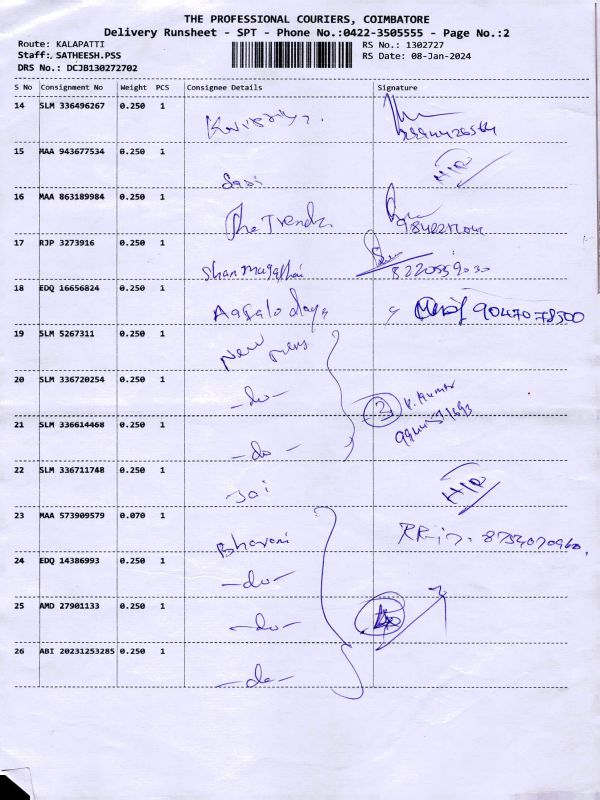 THE PROFESSIONAL COURIERS, COIMBATORE
Delivery Runsheet - SPT - Phone No.:0422-3505555 - Page No.:2
Route: KALAPATTI RS No.: 1302727
Staff: SATHEESH.PSS RS Date: 08-Jan-2024
DRS No.: DCJB130272702
S No Consignment No Weight PCS Consignee Details Signature
14 SLM 336496267 0.250 1
15 MAA 943677534 0.250 1
Sasi
16 MAA 863189984 0.250 1
The Trendz
17 RJP 3273916 0.250 1
8220559030
18 EDQ 16656824 0.250 1
9047078500
19 SLM 5267311 0.250 1
New
20 SLM 336720254 0.250 1
-do-
21 SLM 336614468 0.250 1
-do-
3
K. Kumar
22 SLM 336711748 0.250 1
Jai
23 MAA 573909579 0.070 1
Bhavani
24 EDQ 14386993 0.250 1
-do-
25 AMD 27901133 0.250 1
-do-
26 ABI 20231253285 0.250 1
-do-